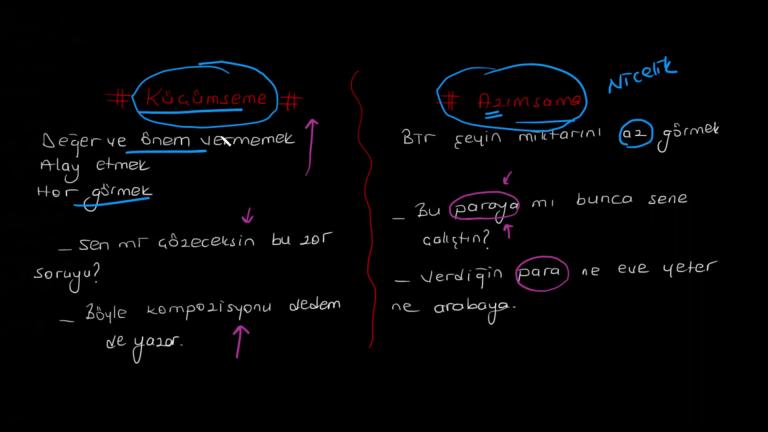 # Küçümseme #
Değer ve önem vermemek
Alay etmek
Hor görmek
_ Sen mi çözeceksin bu zor
soruyu?
_ Böyle kompozisyonu dedem
de yazar.
# Azımsama
Nicelik
Bir şeyin miktarını az görmek
_ Bu paraya mı bunca sene
çalıştın?
_ Verdiğin para ne eve yeter
ne arabaya.